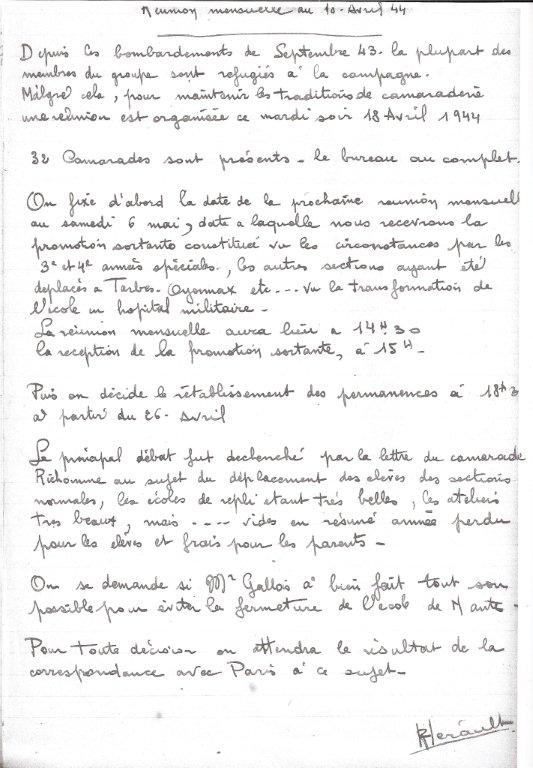 Réunion mensuelle du 10 Avril 44
Depuis les bombardements de Septembre 43. la plupart des
membres du groupe sont refugiés à la campagne.
Malgré cela, pour maintenir les traditions de camaraderie
une réunion est organisée ce mardi soir 18 Avril 1944
32 Camarades sont présents - le bureau au complet.
On fixe d'abord la date de la prochaine reunion mensuell
au samedi 6 mai, date a laquelle nous recevrons la
promotion sortante constituée vu les circonstances par les
3e et 4e années spéciales., les autres sections ayant été
deplacés a Tarbes. Oyonnax etc... vu la transformation de
l'école en hopital militaire -
La réunion mensuelle aura lieu a 14H30
la reception de la promotion sortante, à 15H -
Puis on décide le rétablissement des permanences à 18H3
à partir du 26- Avril
Le principal débat fut declenché par la lettre du camarade
Richomme au sujet du déplacement des elèves des sections
normales, les écoles de repli etant très belles, les ateliers
tres beaux, mais .... vides en résumé année perdu
pour les elèves et frais pour les parents -
On se demande si Mr Gallois a bien fait tout son
possible pour éviter la fermeture de l'école de Nante -
Pour toute décision on attendra le résultat de la
correspondance avec Paris à ce sujet -
Hérault